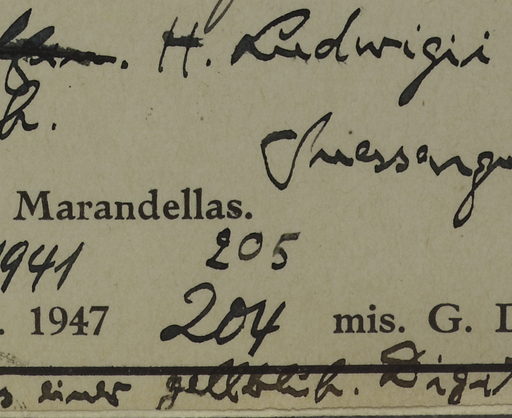 H. Ludwigii
h.
Suesseng
Marandellas.
1941 205
1947 204 mis. G. D
einer gelbblüh. Digit